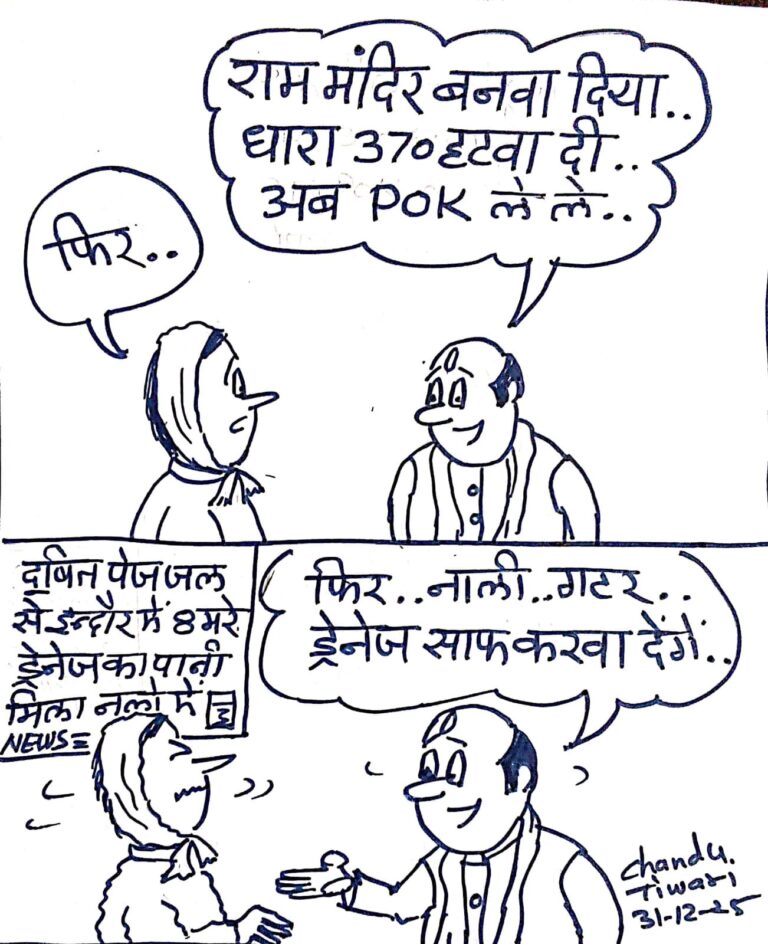 राम मंदिर बनवा दिया..
धारा 370 हटवा दी..
अब POK ले ले..
फिर..
दूषित पेजजल
से इन्दौर में 8 मरे
ड्रेनेज का पानी
मिला नलों में
NEWS
फिर..नाली..गटर..
ड्रेनेज साफ करवा देंगें..
Chandu.
Tiwari
31-12-25